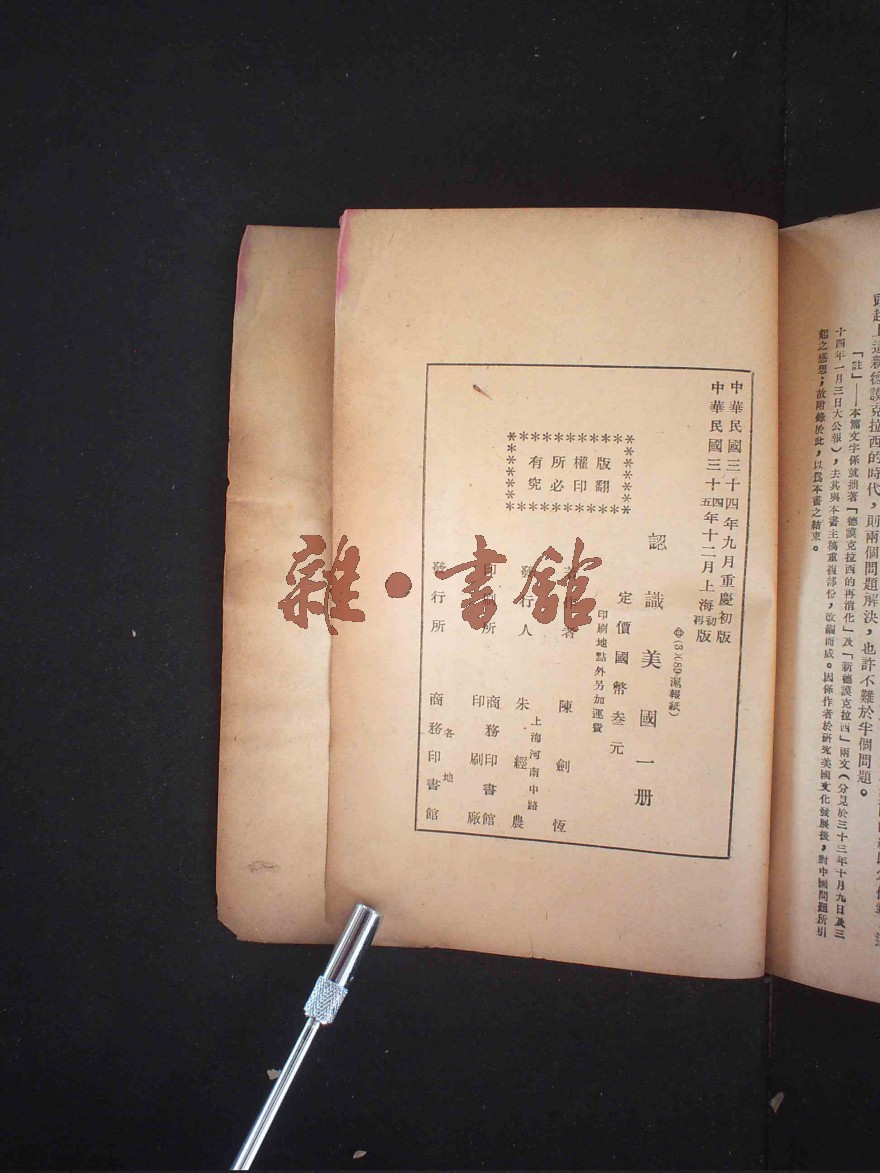 頭趕上這新德謨克拉西的時代，則兩個問題解決，也許不難於半個問題。
「註」——本篇文字係就拙著「德謨克拉西的再消化」及「新德謨克拉西」兩文（分見於三十三年十月九日及三
十四年一月三日大公報），去其與本書主稿重複部份，改編而成。因係作者於研究美國文化發展後，對中國問題所引
起之感想；故附錄於此，以爲本書之結束。
中華民國三十四年九月重慶初版
中華民國三十四年十二月上海初版
五 再
(3)(89滬報紙)
認識美國一册
定價國幣叁元
印刷地點外另加運費
版權所有
翻印必究
著作者 陳劍恆
發行人 朱經農
上海河南中路
印刷所 商務印書館
印刷廠
發行所 商務印書館
各地
雜·書館